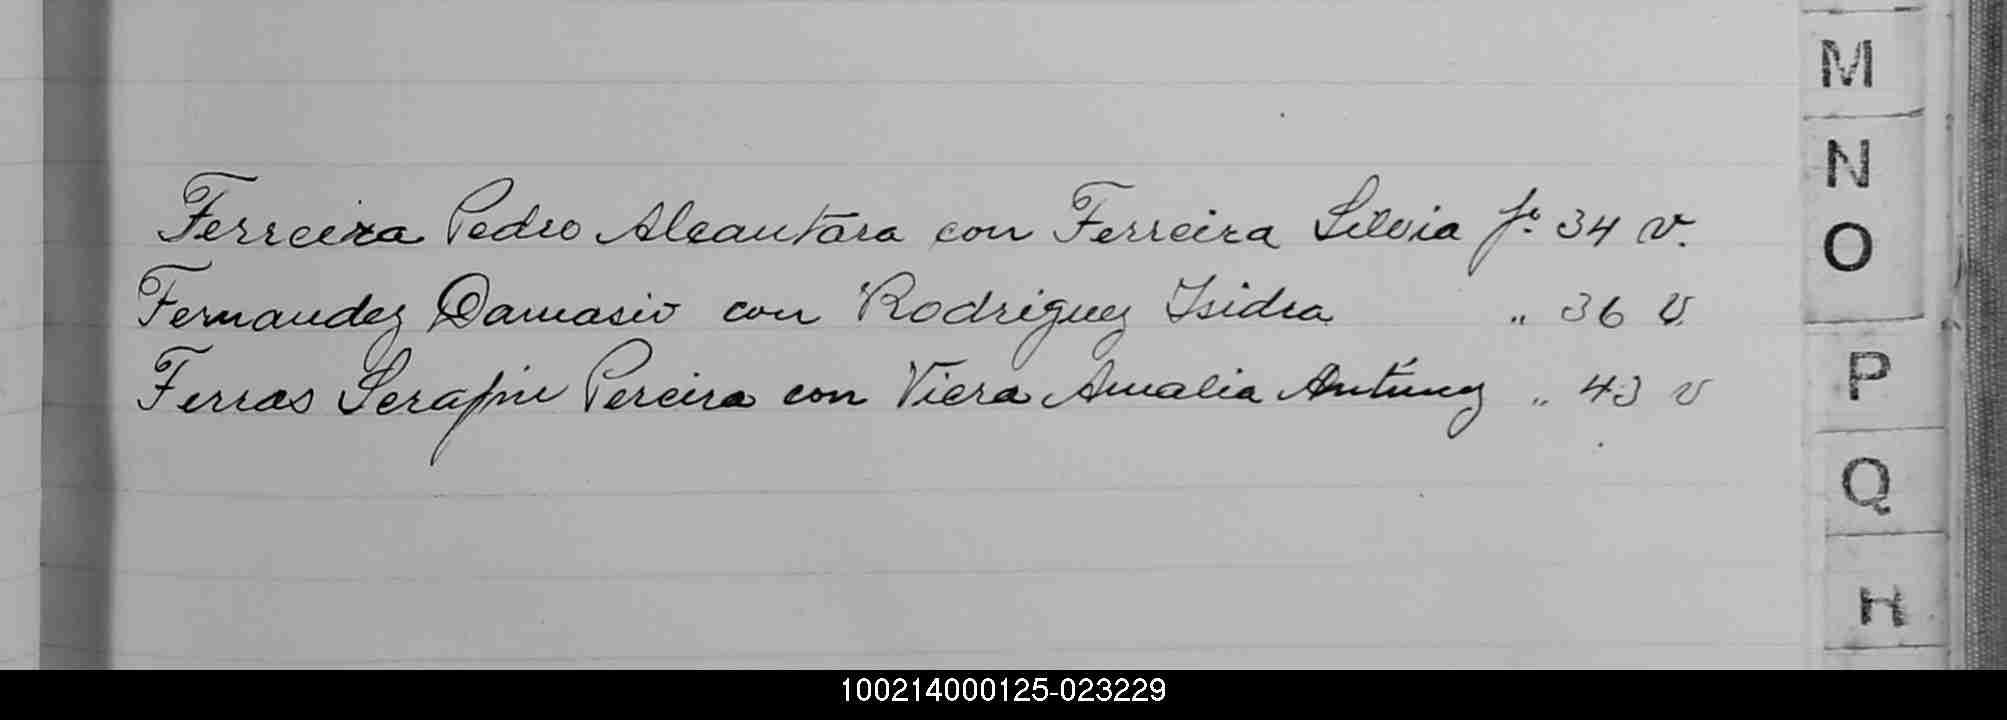 Ferreira Pedro Alcantara con Ferreira Silvia fº 34 v.
Fernandez Damasio con Rodriguez Isidra " 36 v.
Ferras Serafin Pereira con Viera Amalia Antúnez " 43 v
M
N
O
P
Q
H
100214000125-023229